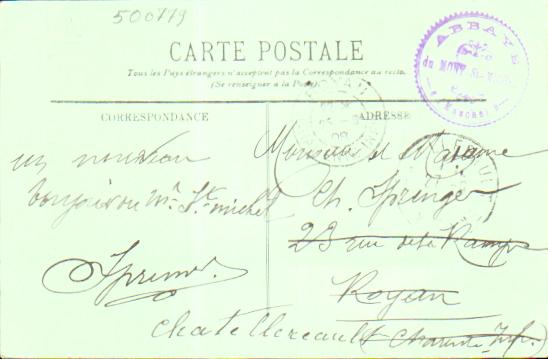 500779
CARTE POSTALE
Tous les Pays étrangers n'acceptent pas la Correspondance au recto.
(Se renseigner à la Poste).
ABBAYE
du MONT St-MICHEL
(MANCHE)
ROYAN
CORRESPONDANCE
ADRESSE
un nouveau
bonjour du Mt St-michel
Monsieur et Madame
Ch. Sprenger
23 rue de la Rampe
Royan
Chatellereault (Charente Infre)